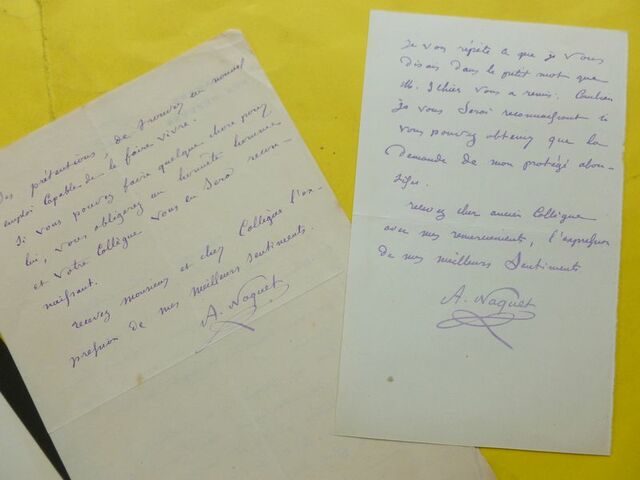 ses prétentions, de trouver un nouvel
emploi capable de le faire vivre.
Si vous pouvez faire quelque chose pour
lui, vous obligerez un honnête homme
et votre collègue vous en sera recon-
naissant.
recevez monsieur et cher Collègue l'ex-
pression de mes meilleurs sentiments.
A. Naquet
Je vous répète ce que je vous
disais dans le petit mot que
M. vous a remis. Combien
Je vous serai reconnaissant si
vous pouvez obtenir que la
demande de mon protégé abou-
tisse.
recevez cher ancien Collègue
avec mes remerciements, l'expression
de mes meilleurs Sentiments
A. Naquet